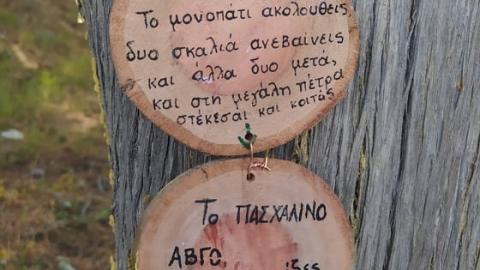 Το μονοπάτι ακολουθείς
δυο σκαλιά ανεβαίνεις
και άλλα δυο μετά,
και στη μεγάλη πέτρα
στέκεσαι και κοιτάς
Το ΠΑΣΧΑΛΙΝΟ
ΑΒΓΟ